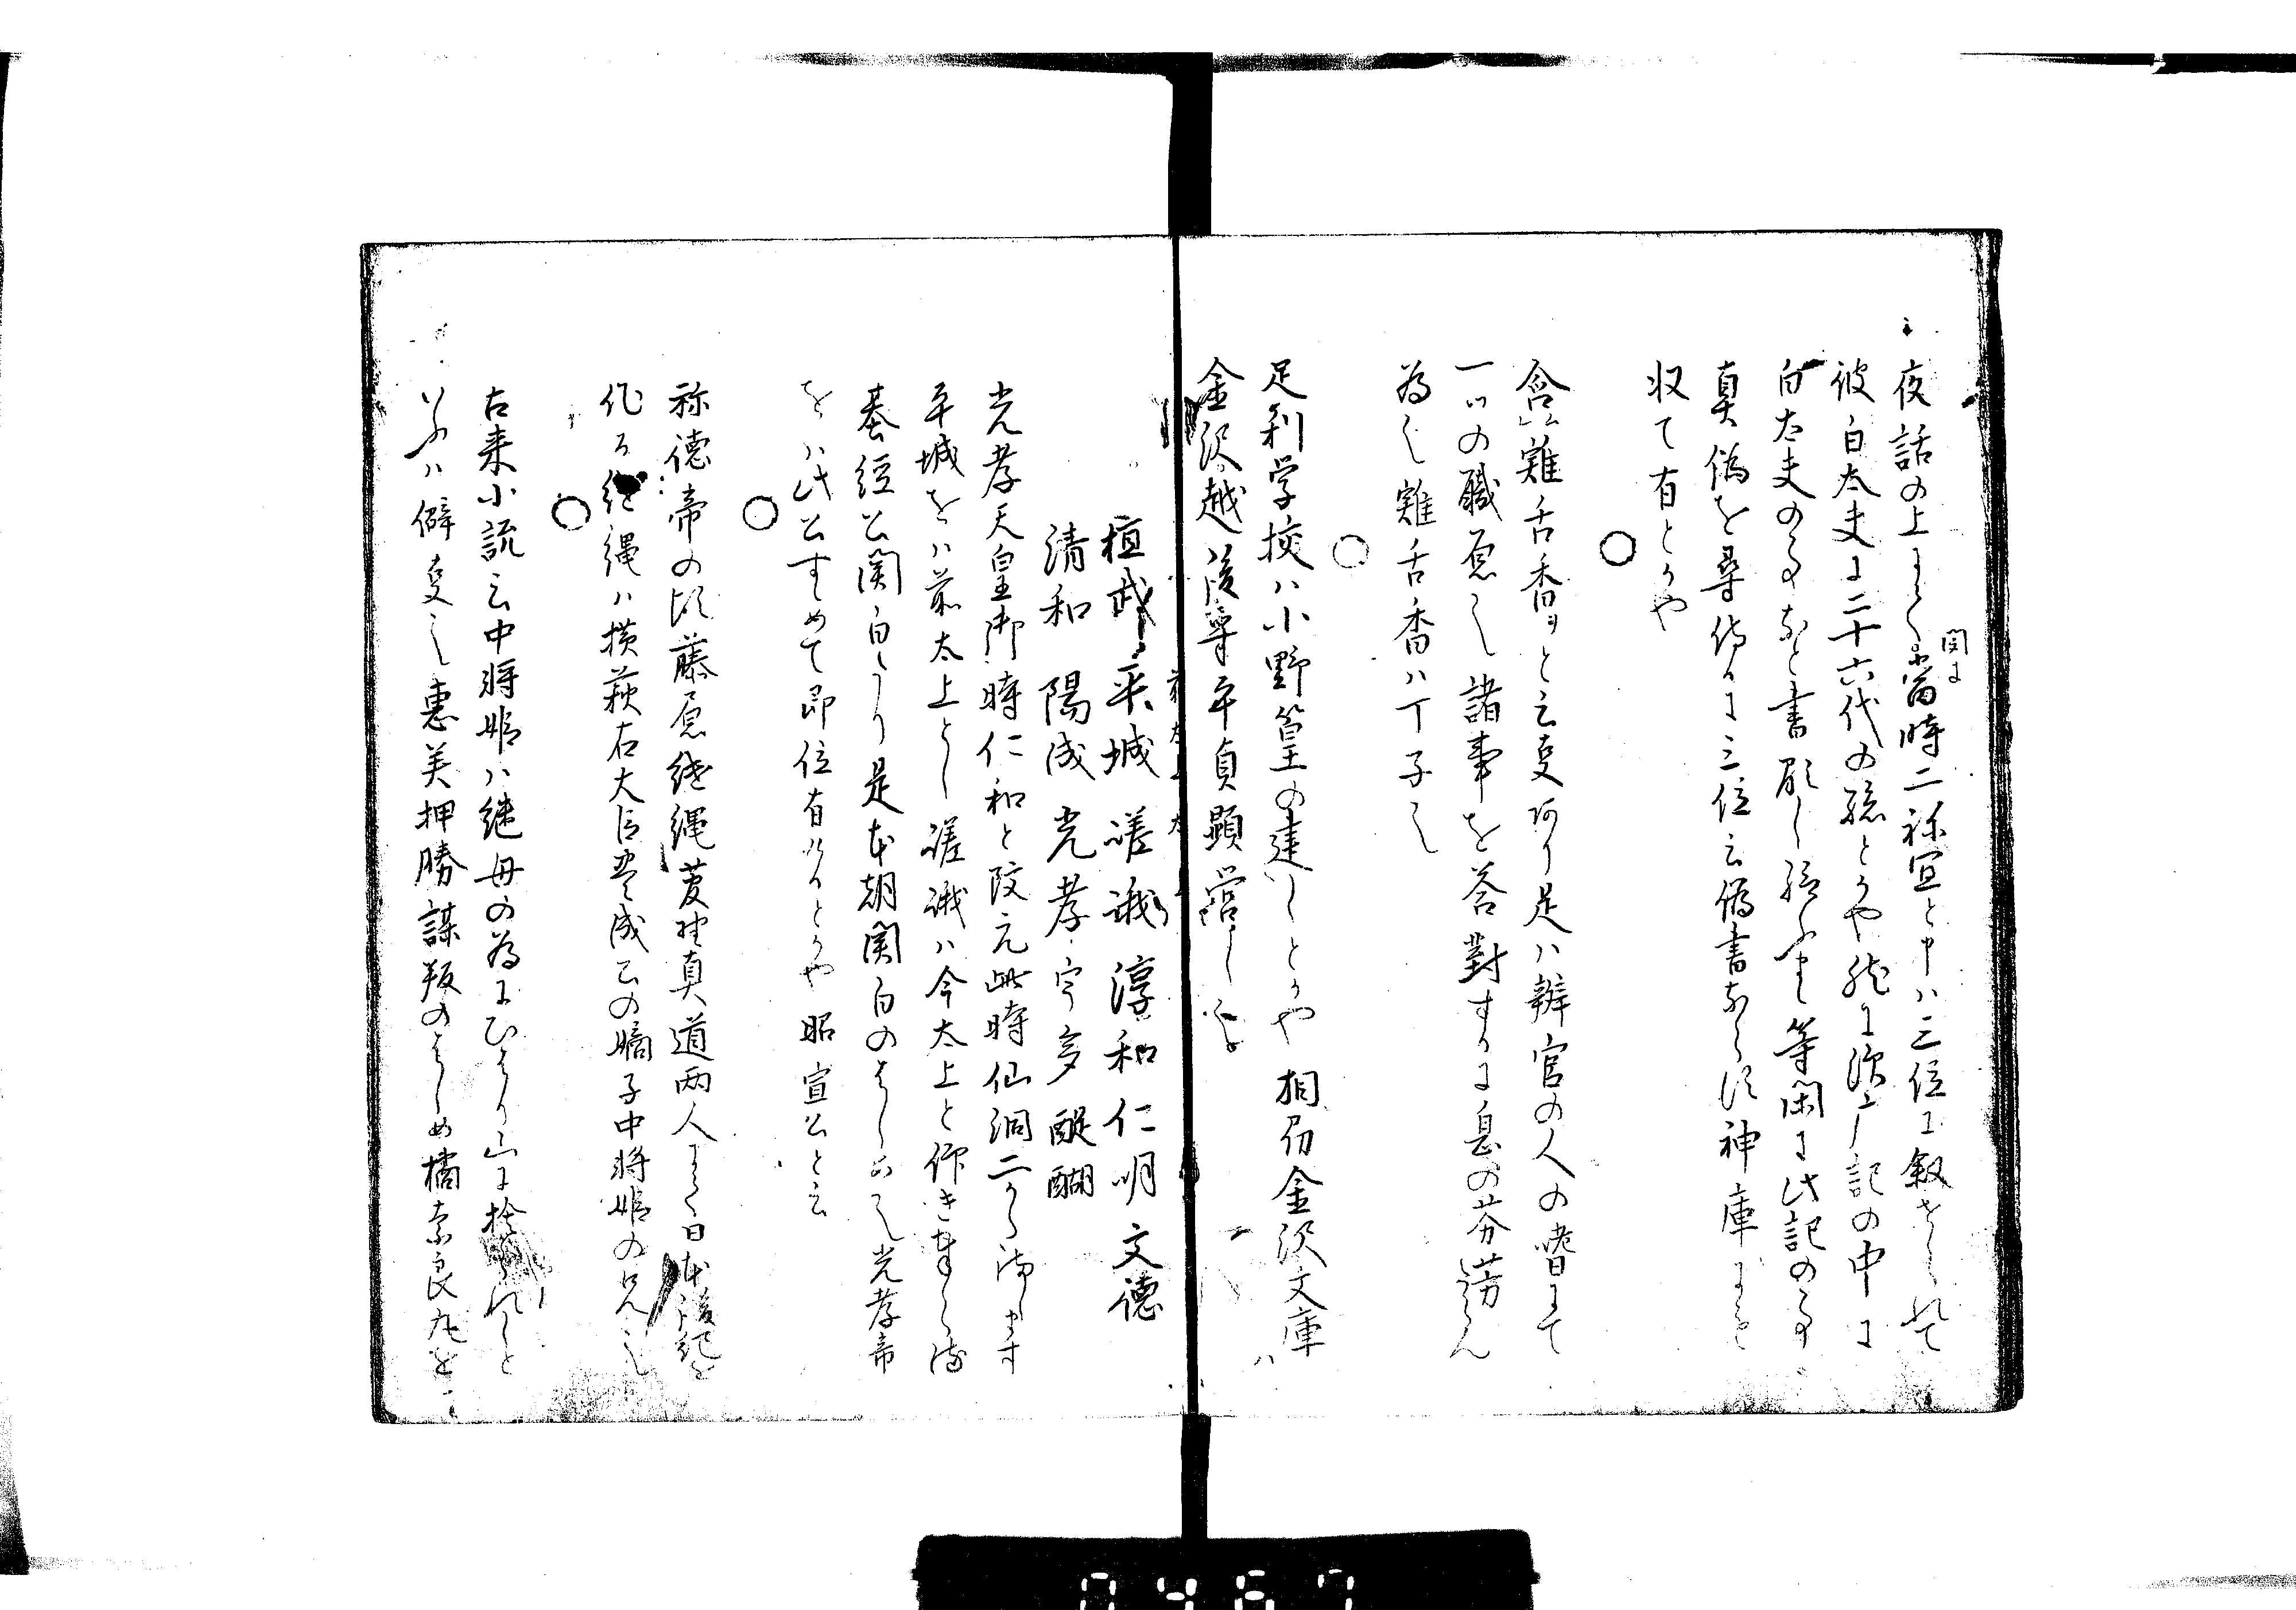 夜話の上にて当時二祢宜と申ハ三位に叙せられて
聞に
彼白太夫に二十六代の孫とかや
白太夫の事なと書顕し 等閑に此記の事
真偽を尋侍るに三位云偽書ならす神庫にも
収て有とかや
○
含雞舌香ヲと云事あり是ハ辨官の人の嗜にて
一ツの職原也諸事を答對するに息の芬芳らん
為也雞舌香ハ丁子也
○
足利学校ハ小野篁の建しとかや 相州金沢文庫ハ
金沢越後守平貞顕営し也
桓武 平城 嵯峨 淳和 仁明 文德
清和 陽成 光孝 宇多 醍醐
光孝天皇御時仁和と改元此時仙洞二から御します
平城をハ前太上とし嵯峨ハ今太上と仰き奉らる
基經公関白たり是本朝関白のはしめ也光孝帝
をハ此公すゝめて即位有けるとかや 昭宣公と云
○
称德帝の頃藤原継縄菅野真道両人にて日本後紀を
作る継縄ハ横萩右大臣豊成公の嫡子中将姫の兄也
○
古来小説云中将姫ハ継母の為にひはり山に捨られしと
いふハ僻事也惠美押勝謀叛のはしめ橘奈良丸を